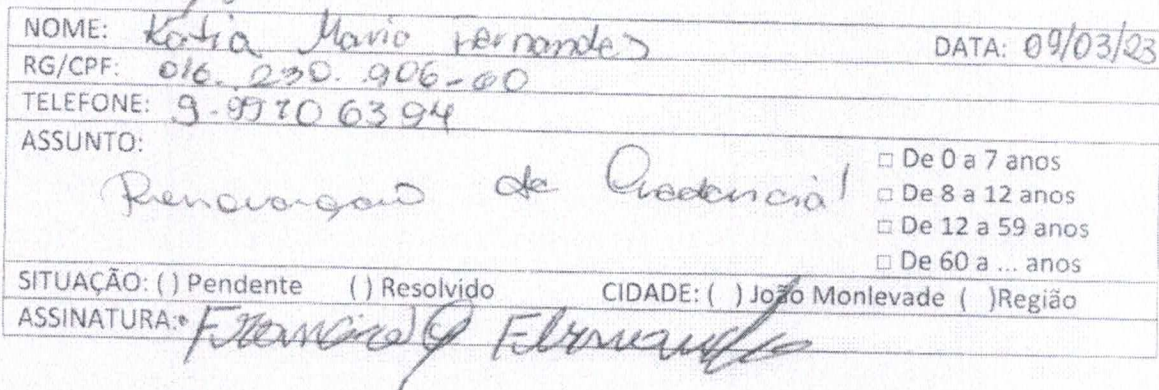 NOME: Kátia Maria Fernandes DATA: 09/03/23
RG/CPF: 016.230.906-60
TELEFONE: 9-9970 6394
ASSUNTO:
Renovação de Credencial
□ De 0 a 7 anos
□ De 8 a 12 anos
□ De 12 a 59 anos
□ De 60 a ... anos
SITUAÇÃO: ( ) Pendente ( ) Resolvido CIDADE: ( ) João Monlevade ( )Região
ASSINATURA: